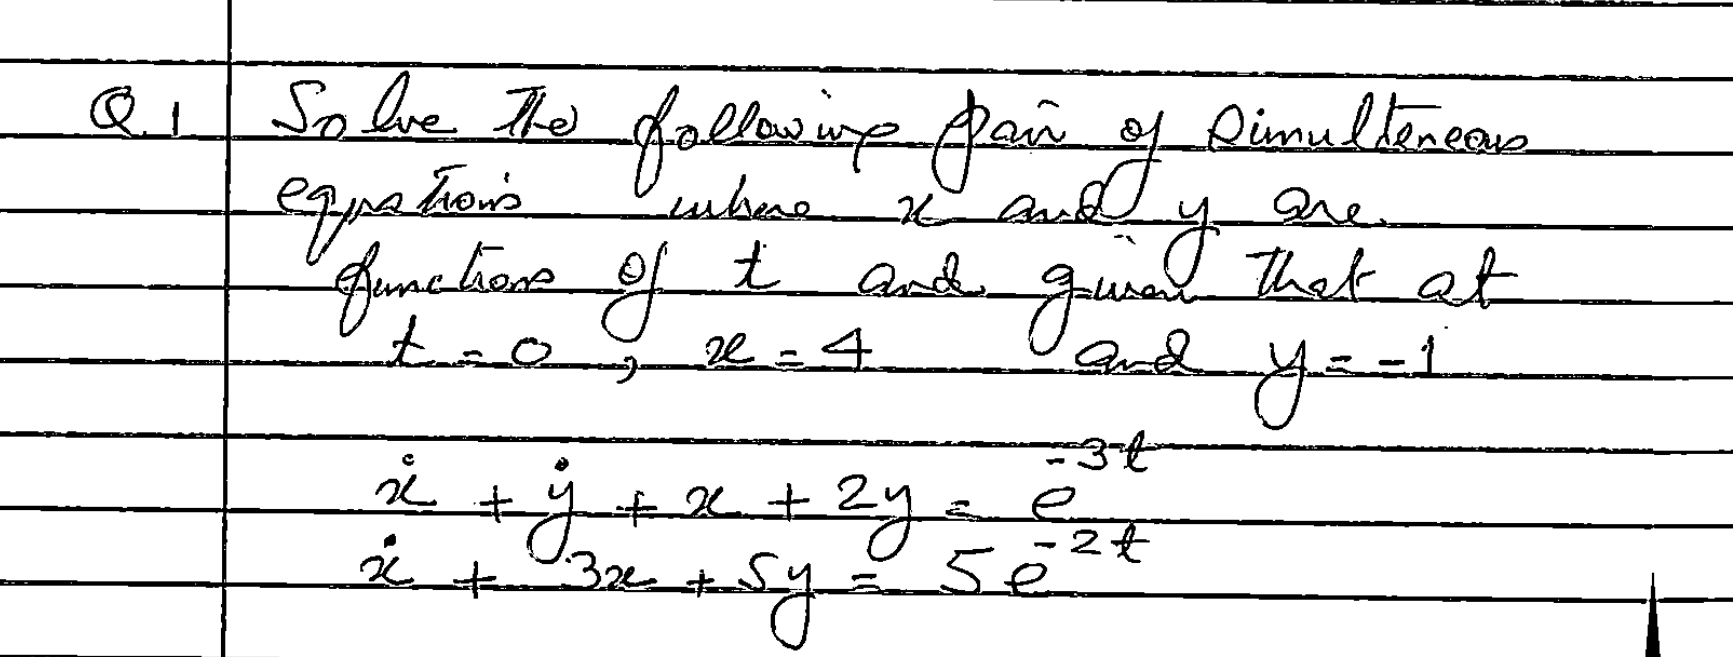 Q.1 Solve the following pair of simulteneous
equations where x and y are
functions of t and given that at
t = 0, x = 4 and y = -1
ẋ + ẏ + x + 2y = e^{-3t}
ẋ + 3x + 5y = 5e^{-2t}